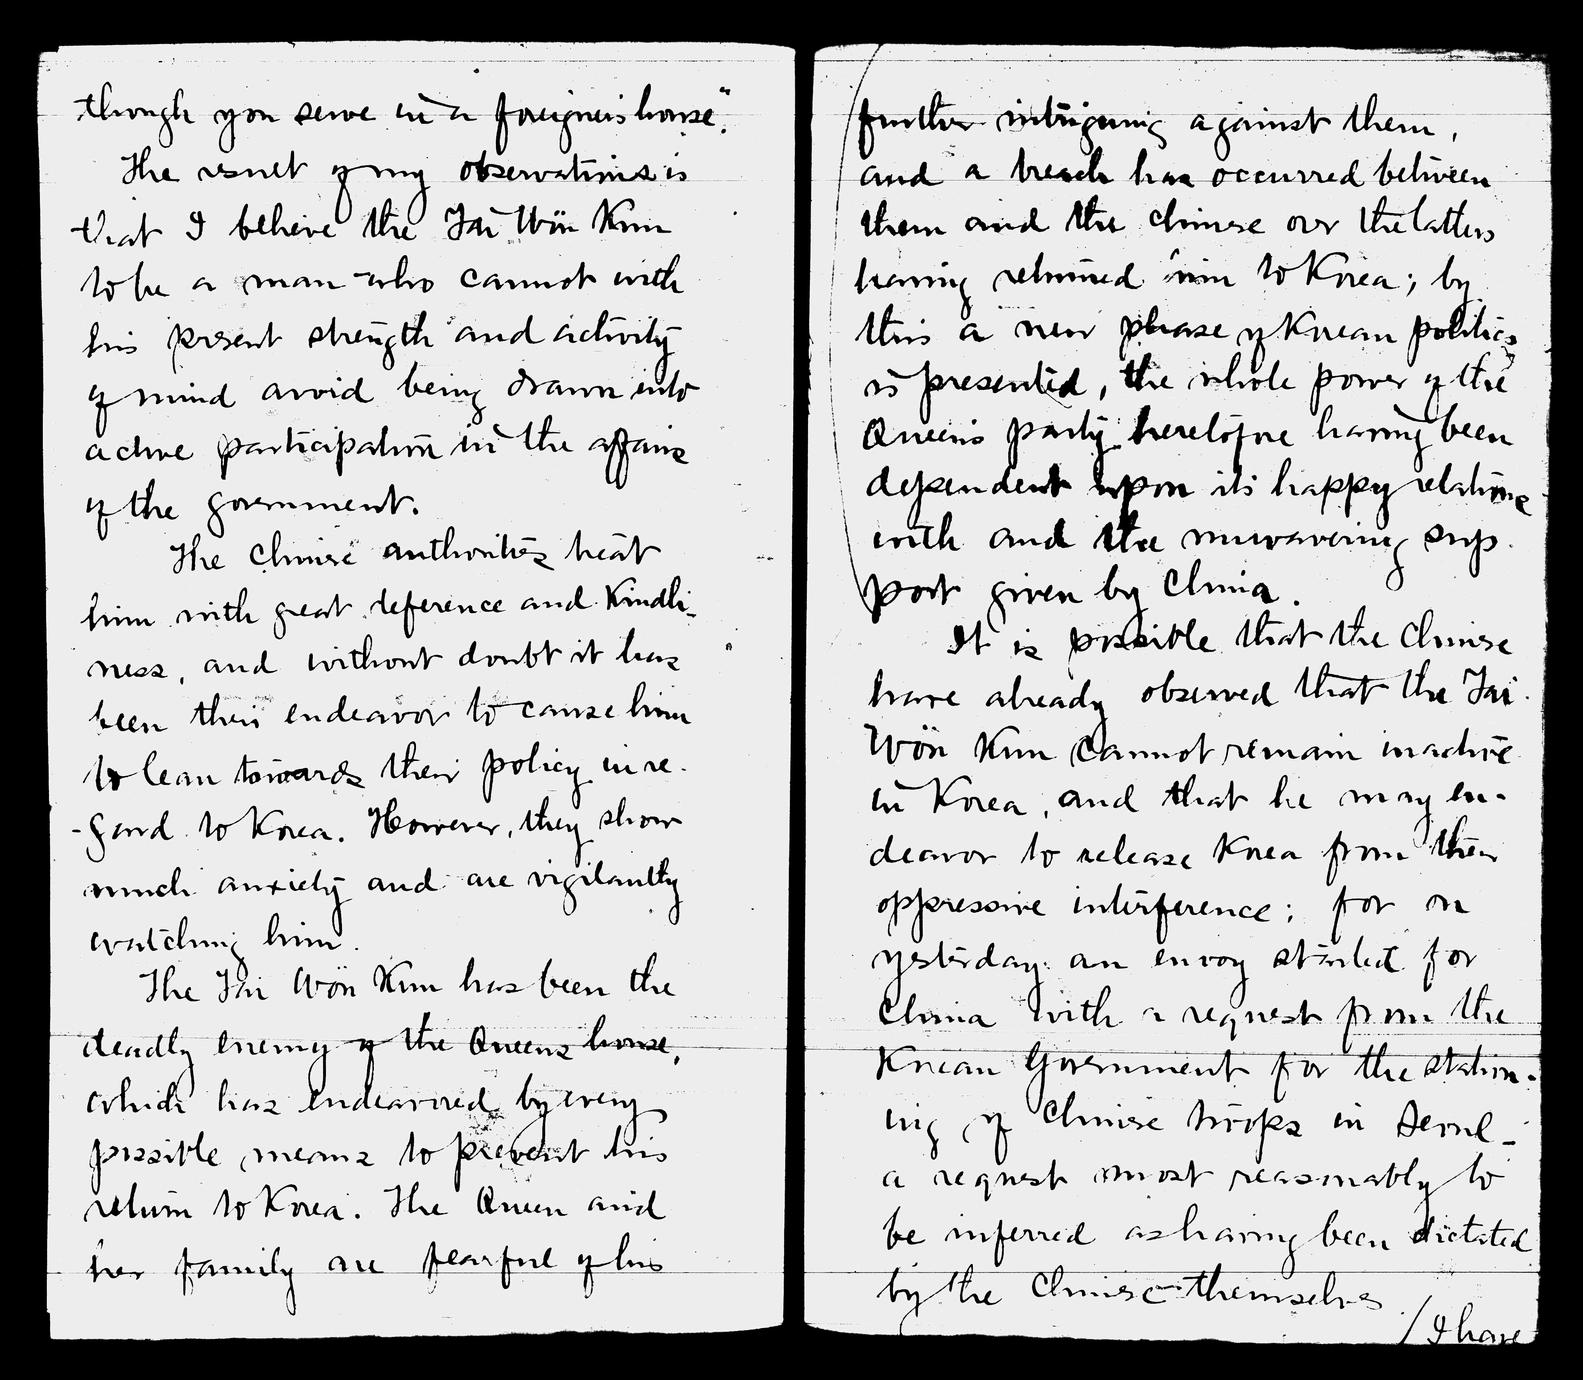 though you serve in a foreigner's house."
The result of my observations is
that I believe the Tai Wön Kun
to be a man who cannot with
his present strength and activity
of mind avoid being drawn into
active participation in the affairs
of the government.
The Chinese authorities treat
him with great deference and kindli-
ness, and without doubt it has
been their endeavor to cause him
to lean towards their policy in re-
gard to Korea. However, they show
much anxiety and are vigilantly
watching him.
The Tai Wön Kun has been the
deadly enemy of the Queen's house,
which has endeavored by every
possible means to prevent his
return to Korea. The Queen and
her family are fearful of his
further intriguing against them,
and a breach has occurred between
them and the Chinese over the latters
having returned him to Korea; by
this a new phase of Korean politics
is presented, the whole power of the
Queen's party heretofore having been
dependent upon its happy relations
with and the unwavering sup-
port given by China.
It is possible that the Chinese
have already observed that the Tai
Wön Kun cannot remain inactive
in Korea, and that he may en-
deavor to release Korea from their
oppressive interference; for on
yesterday an envoy started for
China with a request from the
Korean Government for the station-
ing of Chinese troops in Seoul -
a request most reasonably to
be inferred as having been dictated
by the Chinese themselves
/ I have